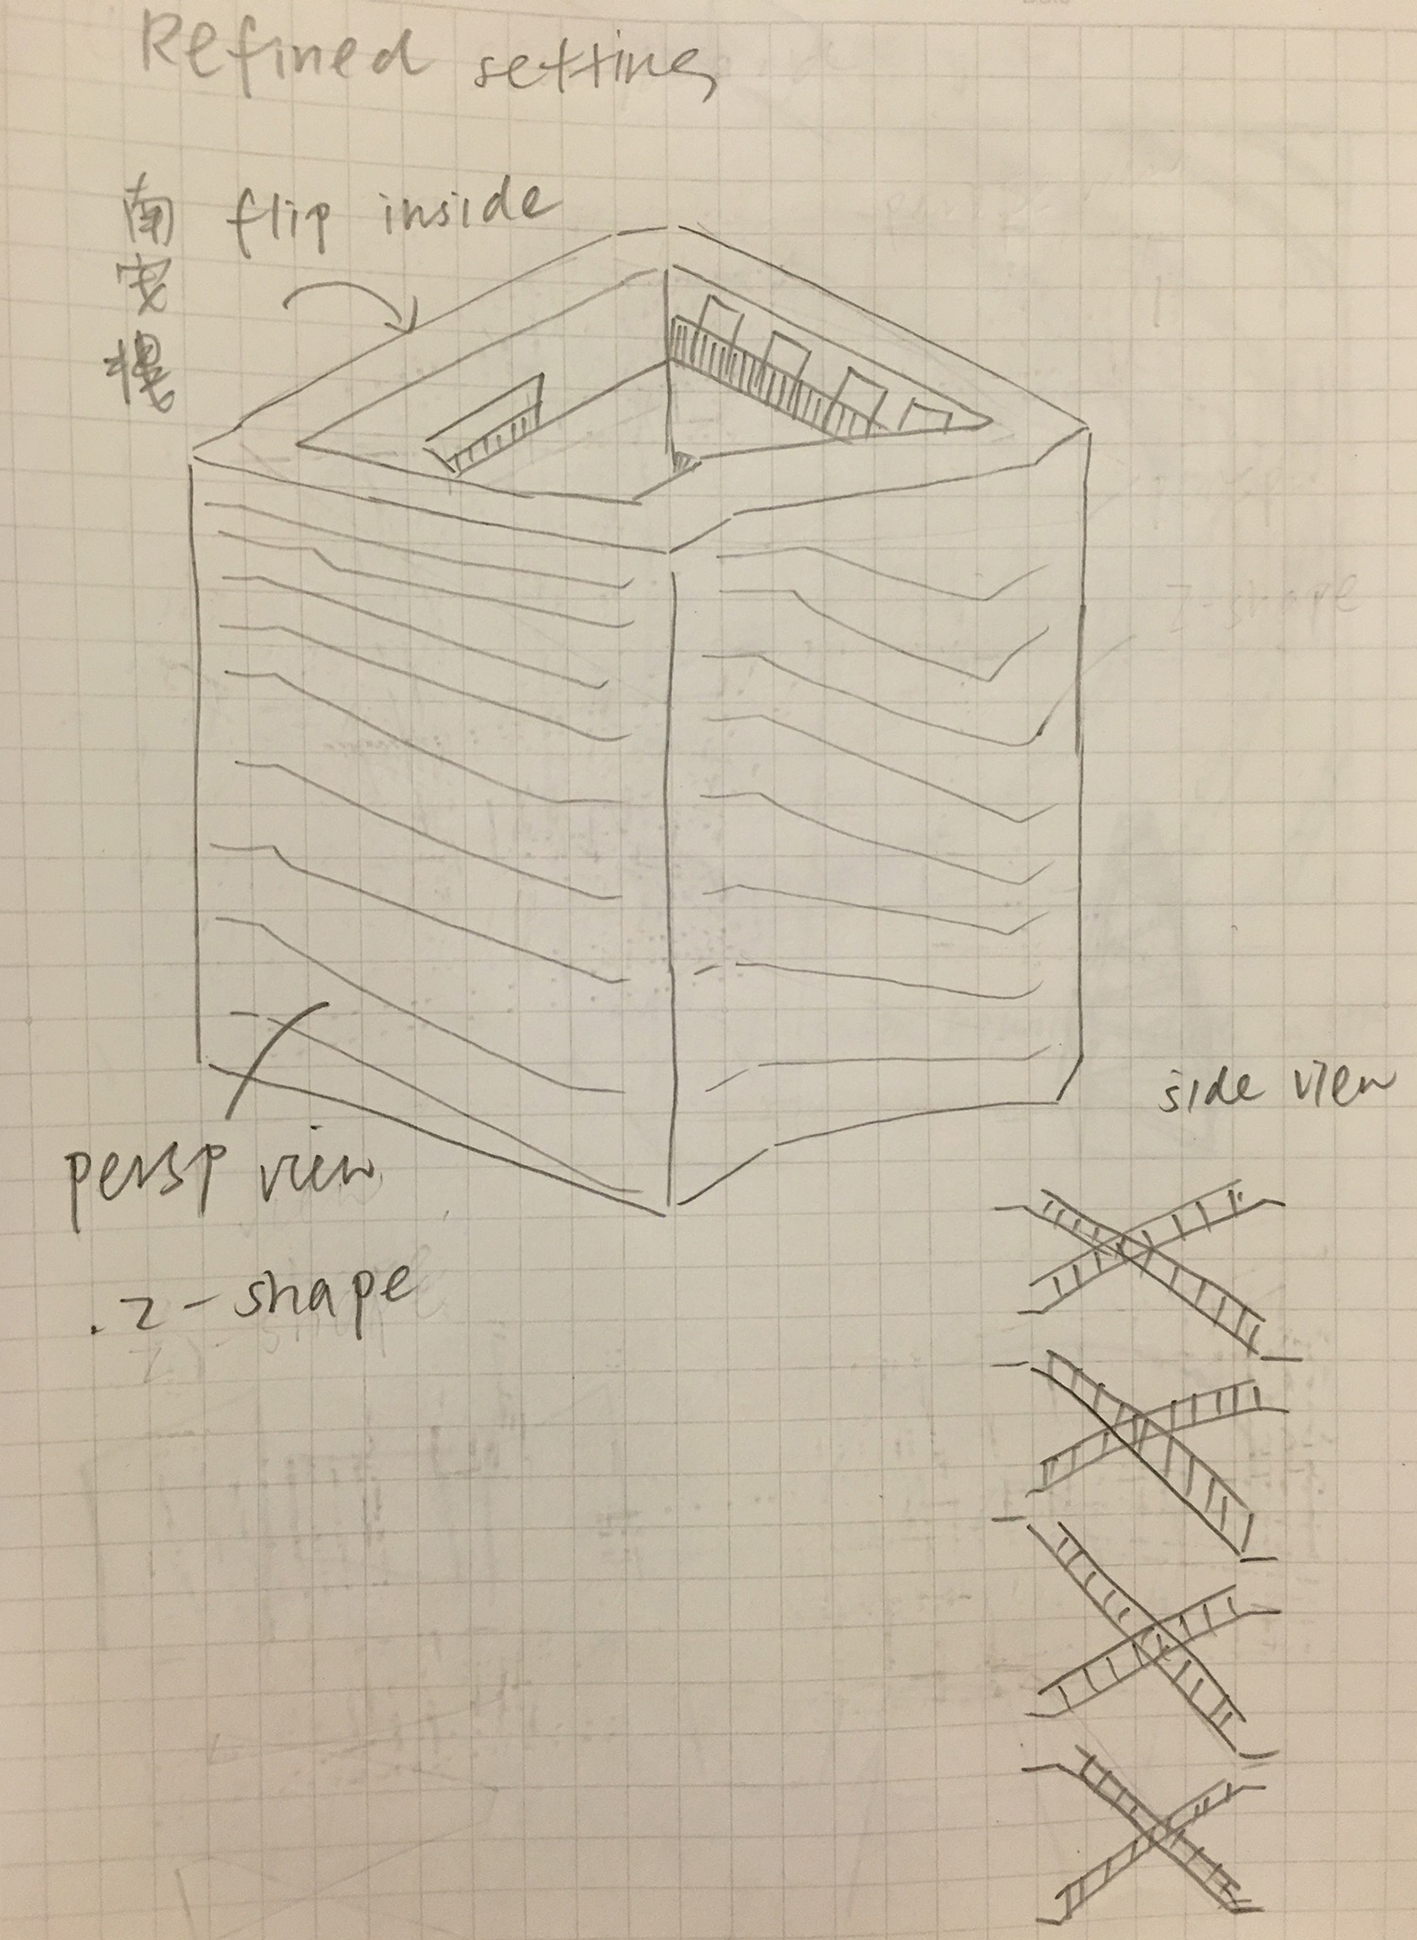 Refined setting
南安楼
flip inside
side view
persp view
.z-shape